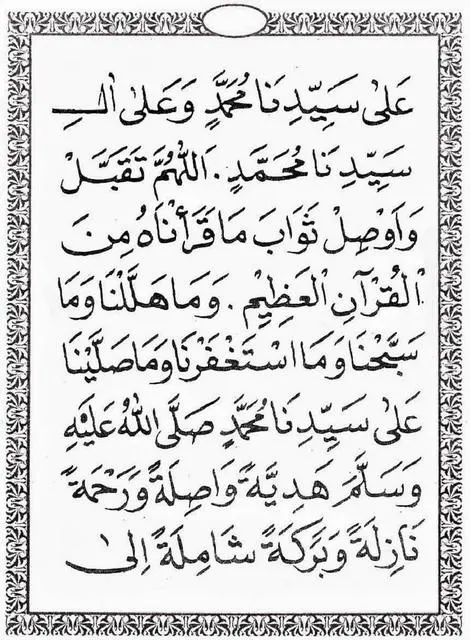 عَلىٰ سَيِّدِنَا مُحَمَّدٍ وَعَلىٰ اٰلِ
سَيِّدِنَا مُحَمَّدٍ. اَللّٰهُمَّ تَقَبَّلْ
وَاَوْصِلْ ثَوَابَ مَا قَرَأْنَاهُ مِنَ
الْقُرْآنِ الْعَظِيْمِ. وَمَا هَلَّلْنَا وَمَا
سَبَّحْنَا وَمَا اسْتَغْفَرْنَا وَمَا صَلَّيْنَا
عَلىٰ سَيِّدِنَا مُحَمَّدٍ صَلَّى اللهُ عَلَيْهِ
وَسَلَّمَ هَدِيَّةً وَاصِلَةً وَرَحْمَةً
نَازِلَةً وَبَرَكَةً شَامِلَةً اِلىٰ